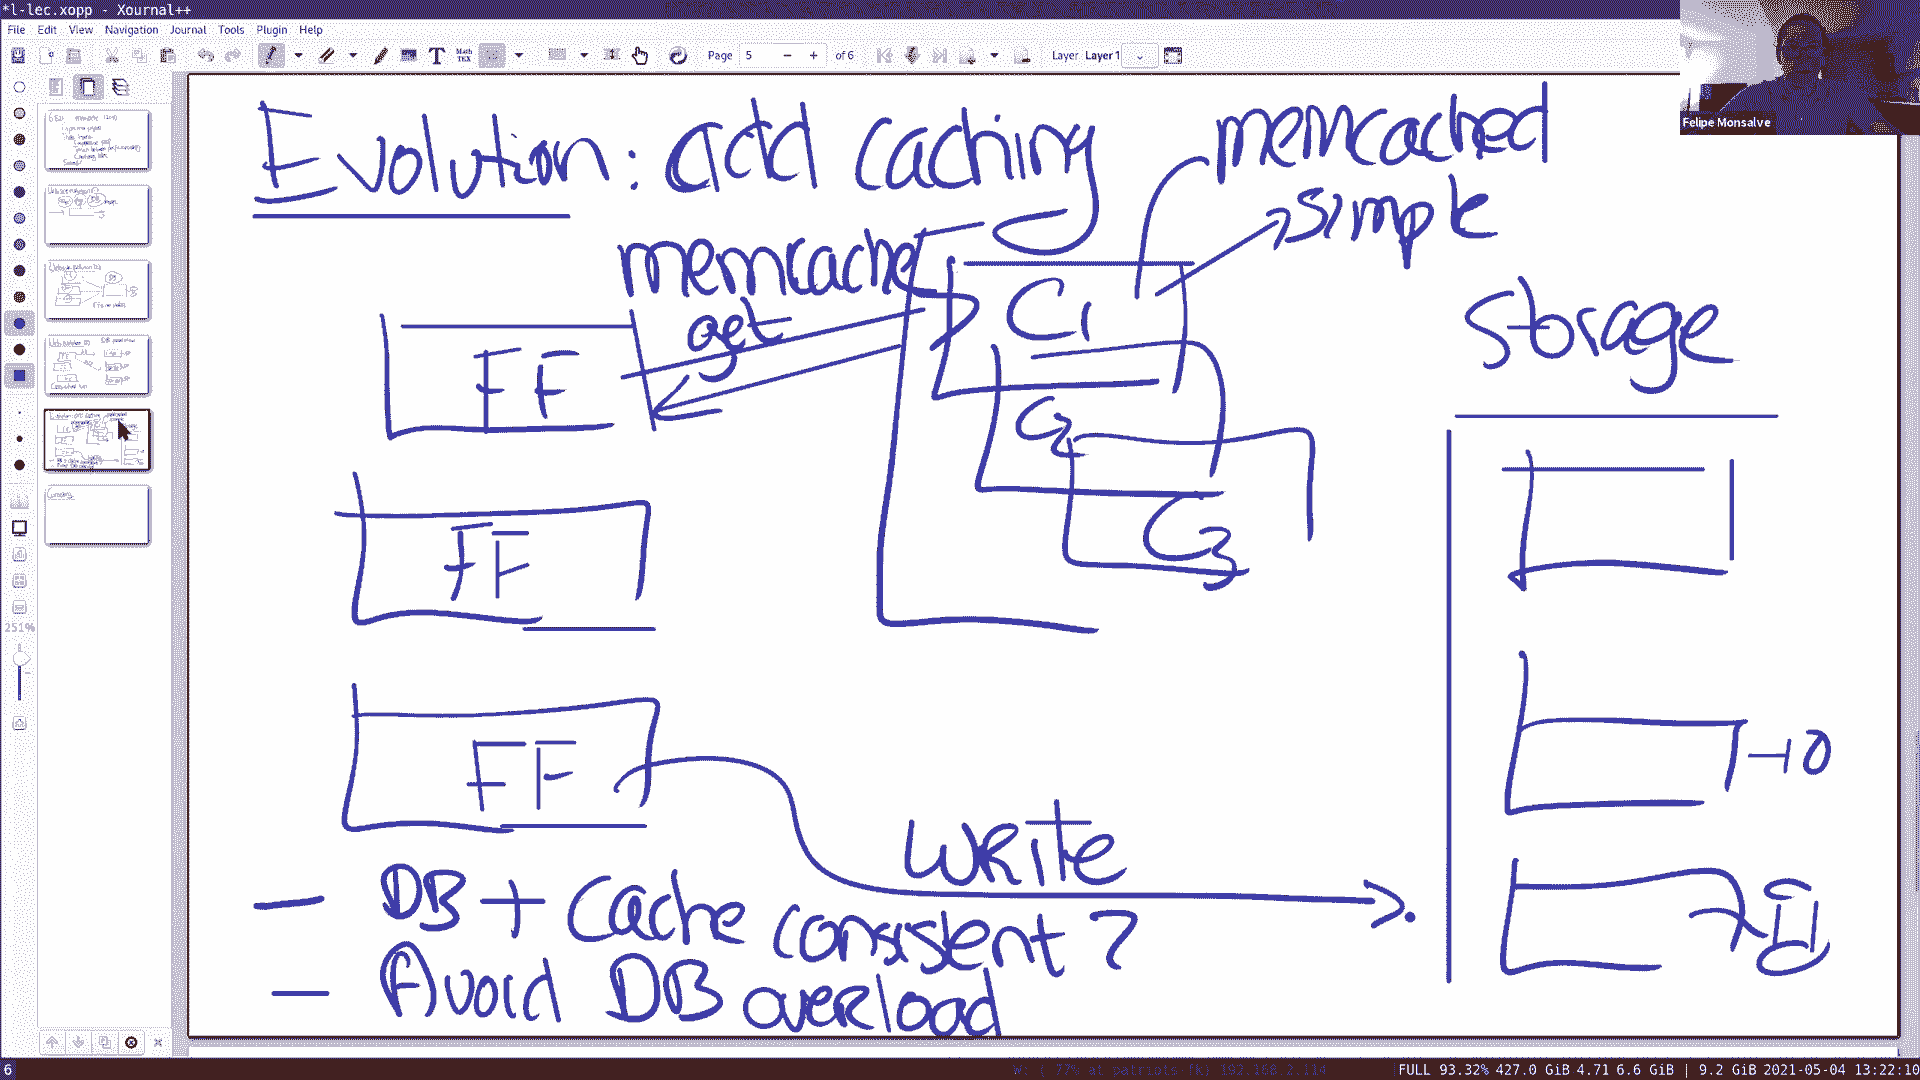 *l-lec.xopp - Xournal++
File Edit View Navigation Journal Tools Plugin Help
Page 5 - + of 6 Layer Layer1
Felipe Monsalve
Evolution: add caching
memcached
simple
memcache
get
C1
C2
C3
FF
FF
FF
Storage
write
- DB + cache consistent?
- Avoid DB overload
251%
6
W: ( 77% at patriots-fk) 192.168.2.114
FULL 93.32% 427.0 GiB 4.71 6.6 GiB | 9.2 GiB 2021-05-04 13:22:10